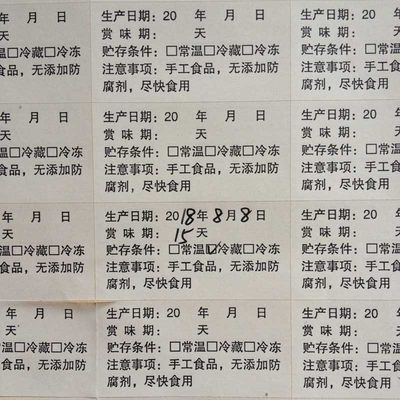 年 月 日
天
温□冷藏□冷冻
食品，无添加防
生产日期：20 年 月 日
赏 味 期： 天
贮存条件：□常温□冷藏□冷冻
注意事项：手工食品，无添加防
腐剂，尽快食用
生产日期
赏 味
贮存条件
注意事项
腐剂，尽
年 月 日
天
温□冷藏□冷冻
食品，无添加防
生产日期：20 年 月 日
赏 味 期： 天
贮存条件：□常温□冷藏□冷冻
注意事项：手工食品，无添加防
腐剂，尽快食用
生产日期
赏 味
贮存条件
注意事项
腐剂，尽
年 月 日
天
温□冷藏□冷冻
食品，无添加防
生产日期：2018年8月8日
赏 味 期：15天
贮存条件：□常温☑冷藏□冷冻
注意事项：手工食品，无添加防
腐剂，尽快食用
生产日期
赏 味
贮存条件
注意事项
腐剂，尽
年 月 日
天
温□冷藏□冷冻
食品，无添加防
生产日期：20 年 月 日
赏 味 期： 天
贮存条件：□常温□冷藏□冷冻
注意事项：手工食品，无添加防
腐剂，尽快食用
生产日期
赏 味
贮存条件
注意事项
腐剂，尽